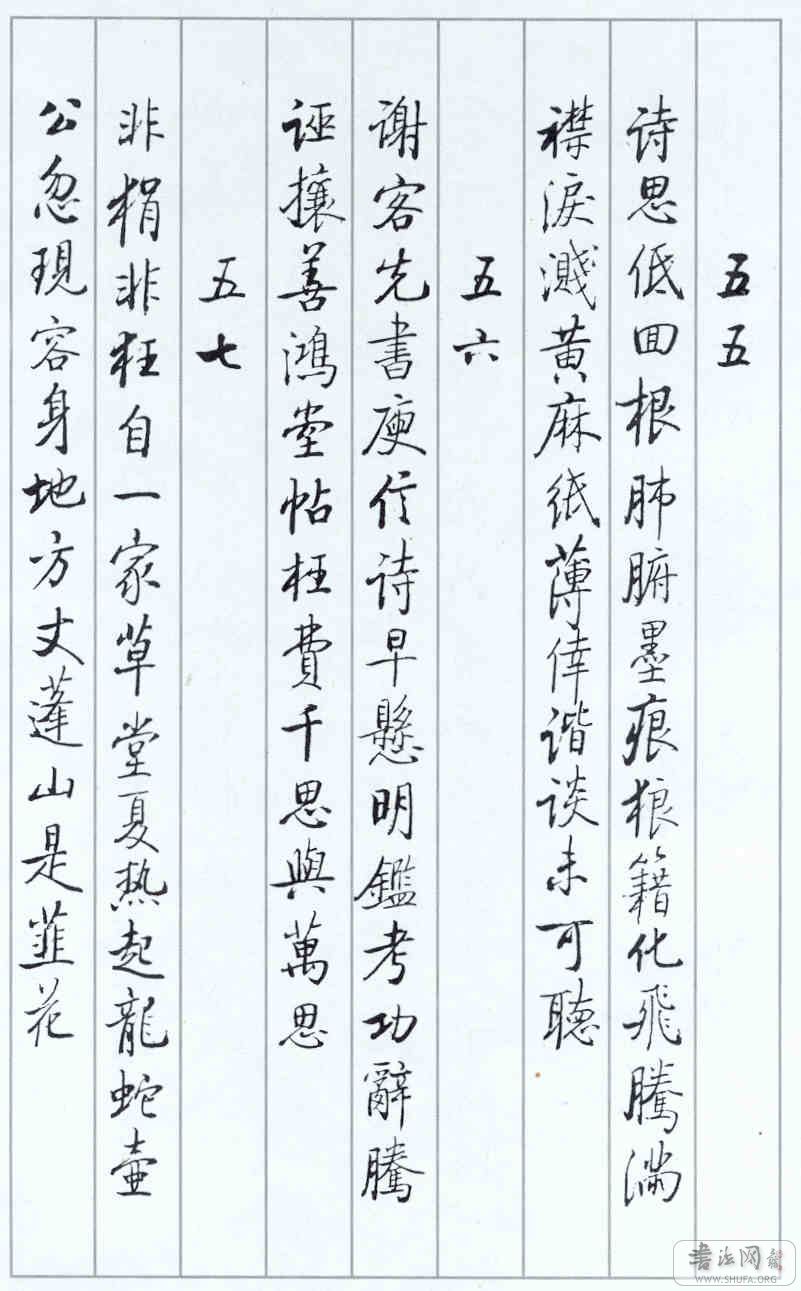 五五
诗思低回根肺腑墨痕狼籍化飛騰满
襟淚濺黄麻紙薄倖谐谈未可聽
五六
谢客先書庾信诗早懸明鑑考功辭騰
诬攘善鴻堂帖枉費千思與萬思
五七
非狷非狂自一家草堂夏热起龍蛇壶
公忽現容身地方丈蓬山是韮花
書法网
WWW.SHUFA.ORG